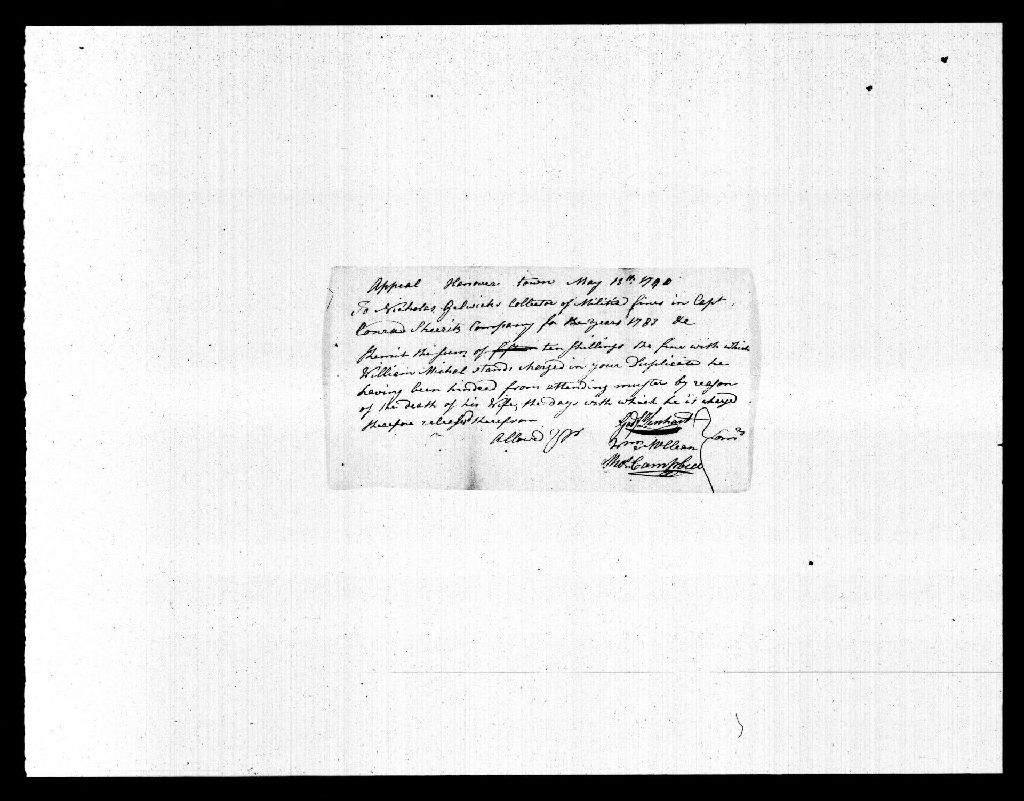 Appeal Hanover town May 13th 178
To Nicholas Gelwicks Collector of Militia fines in Capt.
Conrad Sheerits Company for the years 1783 &c
Remit the sum of ten shillings the fine with which
William Michel stands charged in your Duplicate he
having been hindred from attending muster by reason
of the death of his Wife, the days with which he is charged
therefore releas'd therefrom
Allowd
Wm McClean
Thos. Campbell
Comrs